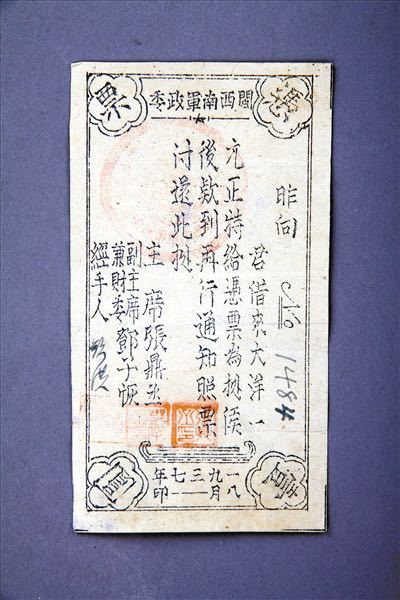 閩西南軍政委
票
昨向
No 1484
君借來大洋一
元正特給憑票為據候
後款到再行通知照票
付還此據
主席張鼎丞
副主席
兼財委鄧子恢
經手人
壹
圓
一九三七年
八月
印